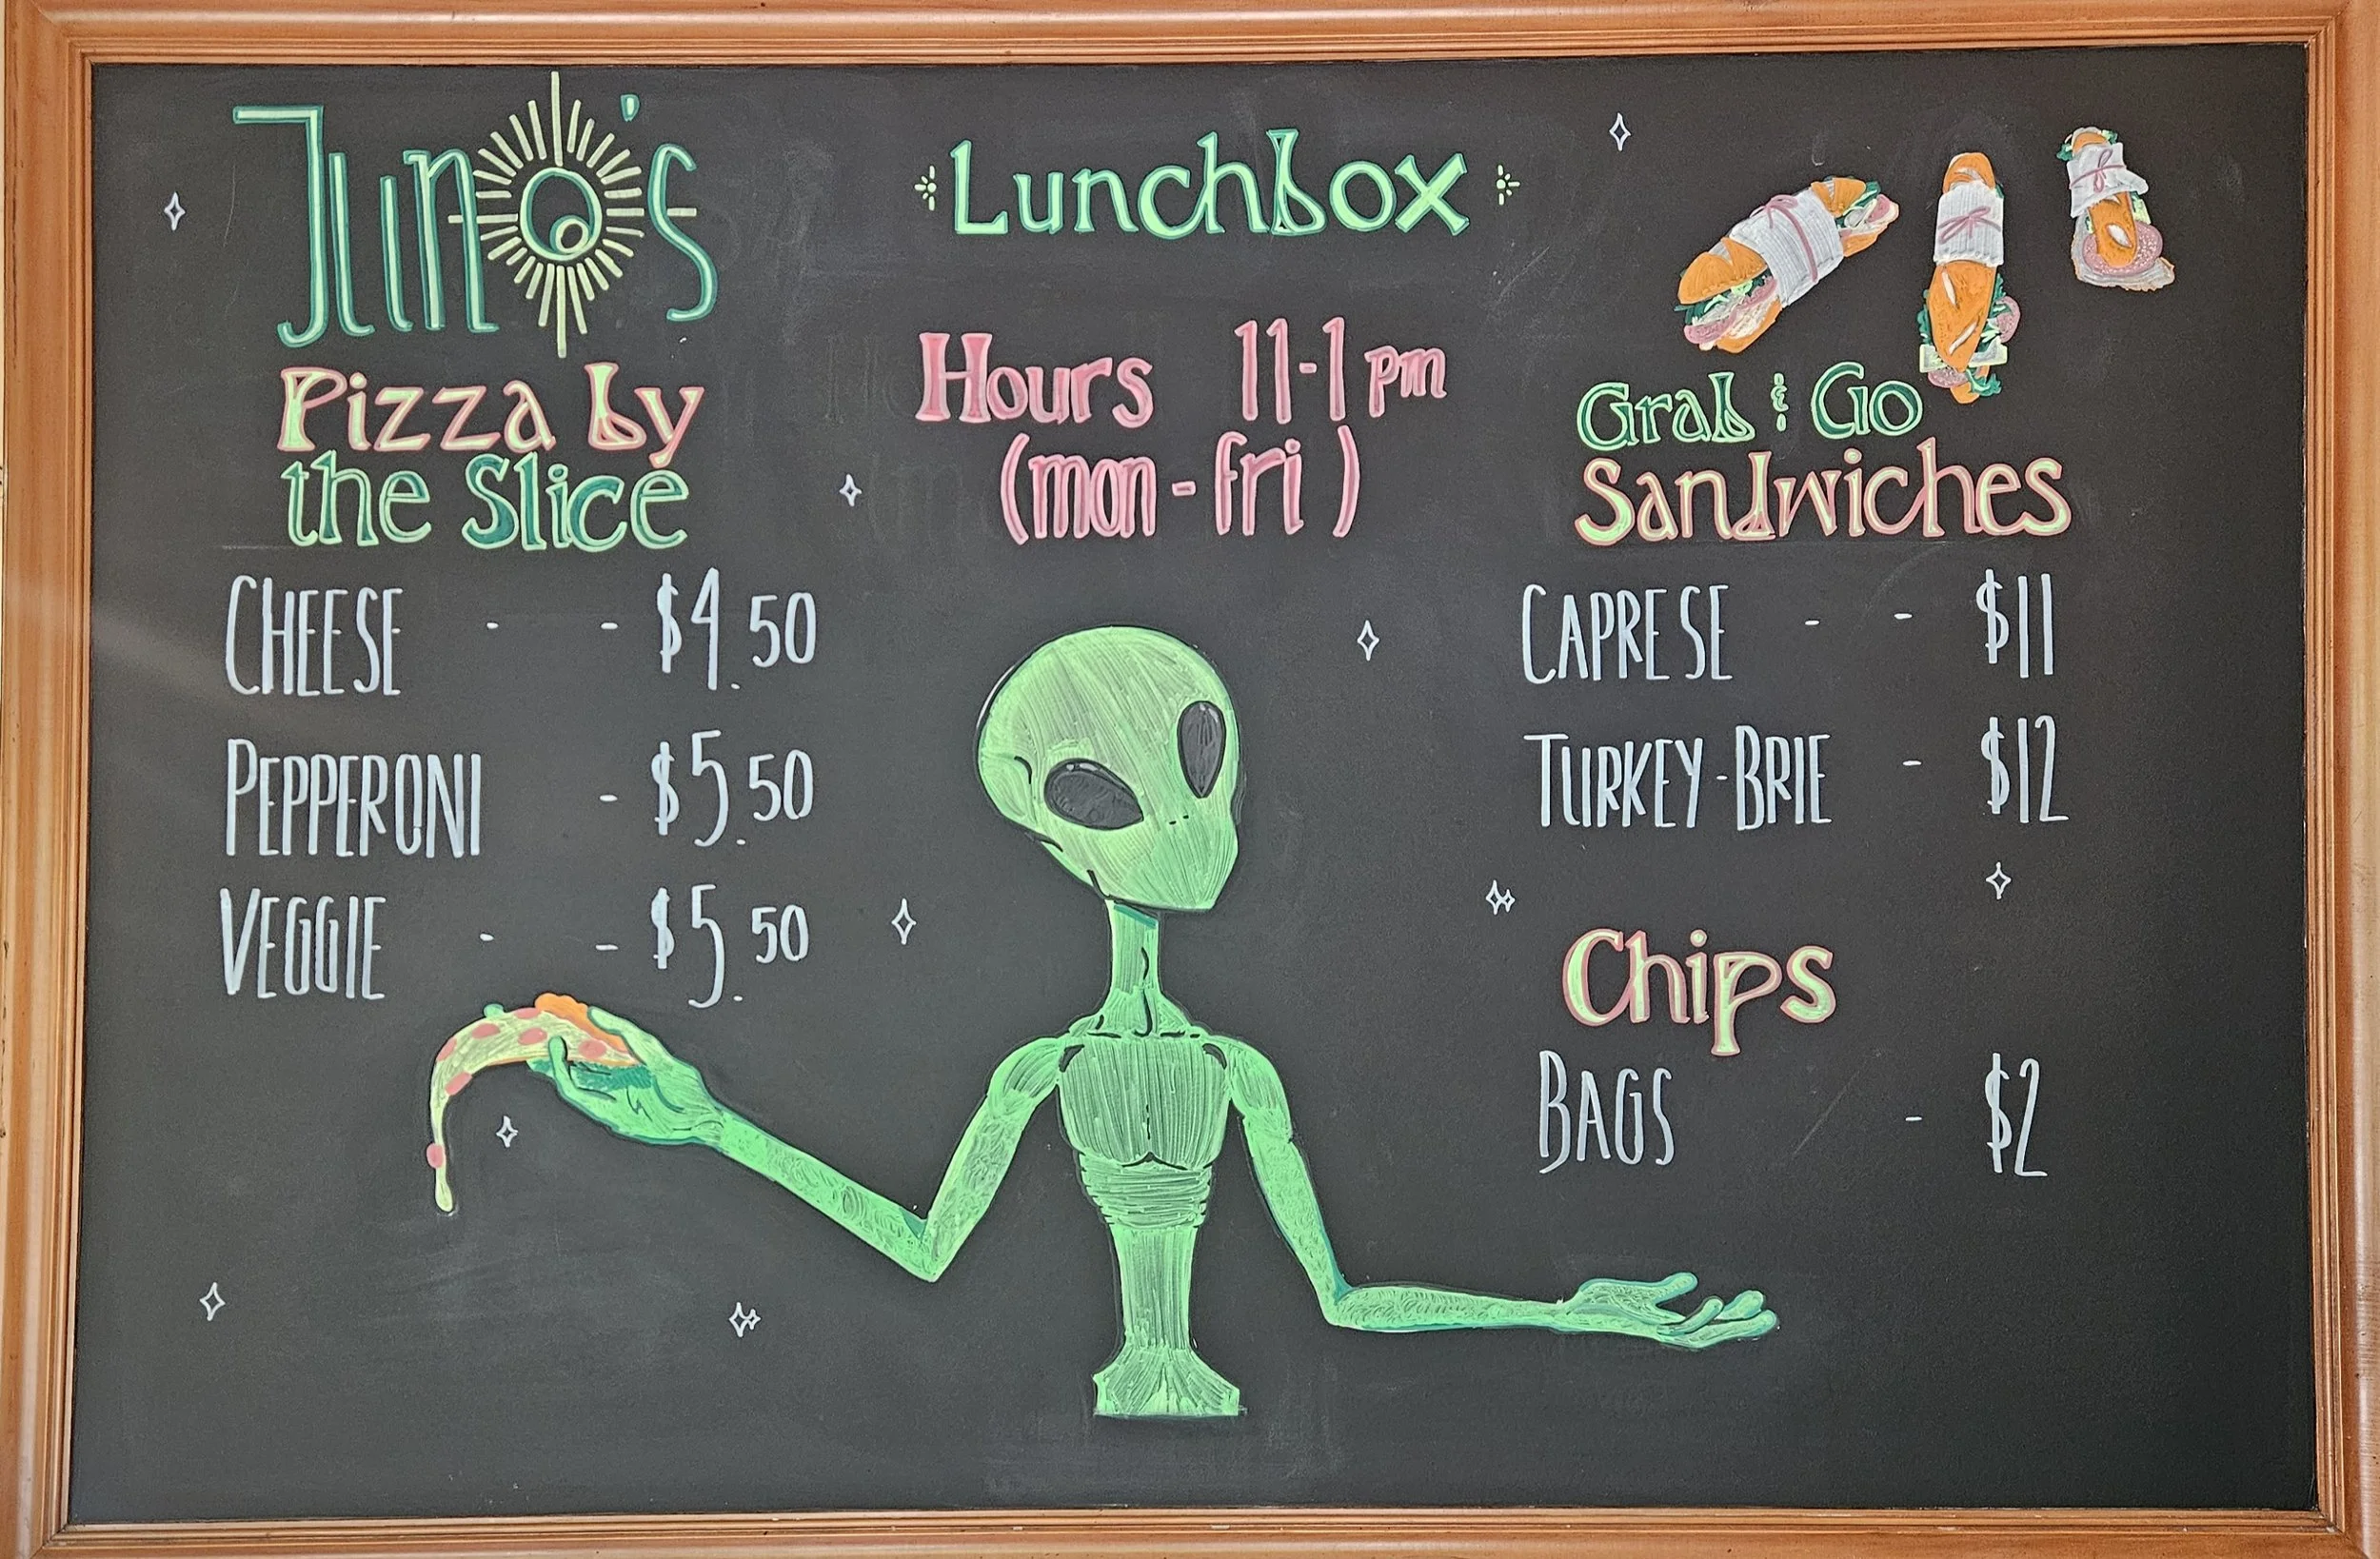 Juno's
Pizza by
the Slice
CHEESE - - $4.50
PEPPERONI - $5.50
VEGGIE - - $5.50
Lunchbox
Hours 11-1pm
(mon-fri)
Grab & Go
Sandwiches
CAPRESE - - $11
TURKEY-BRIE - $12
Chips
BAGS - $2